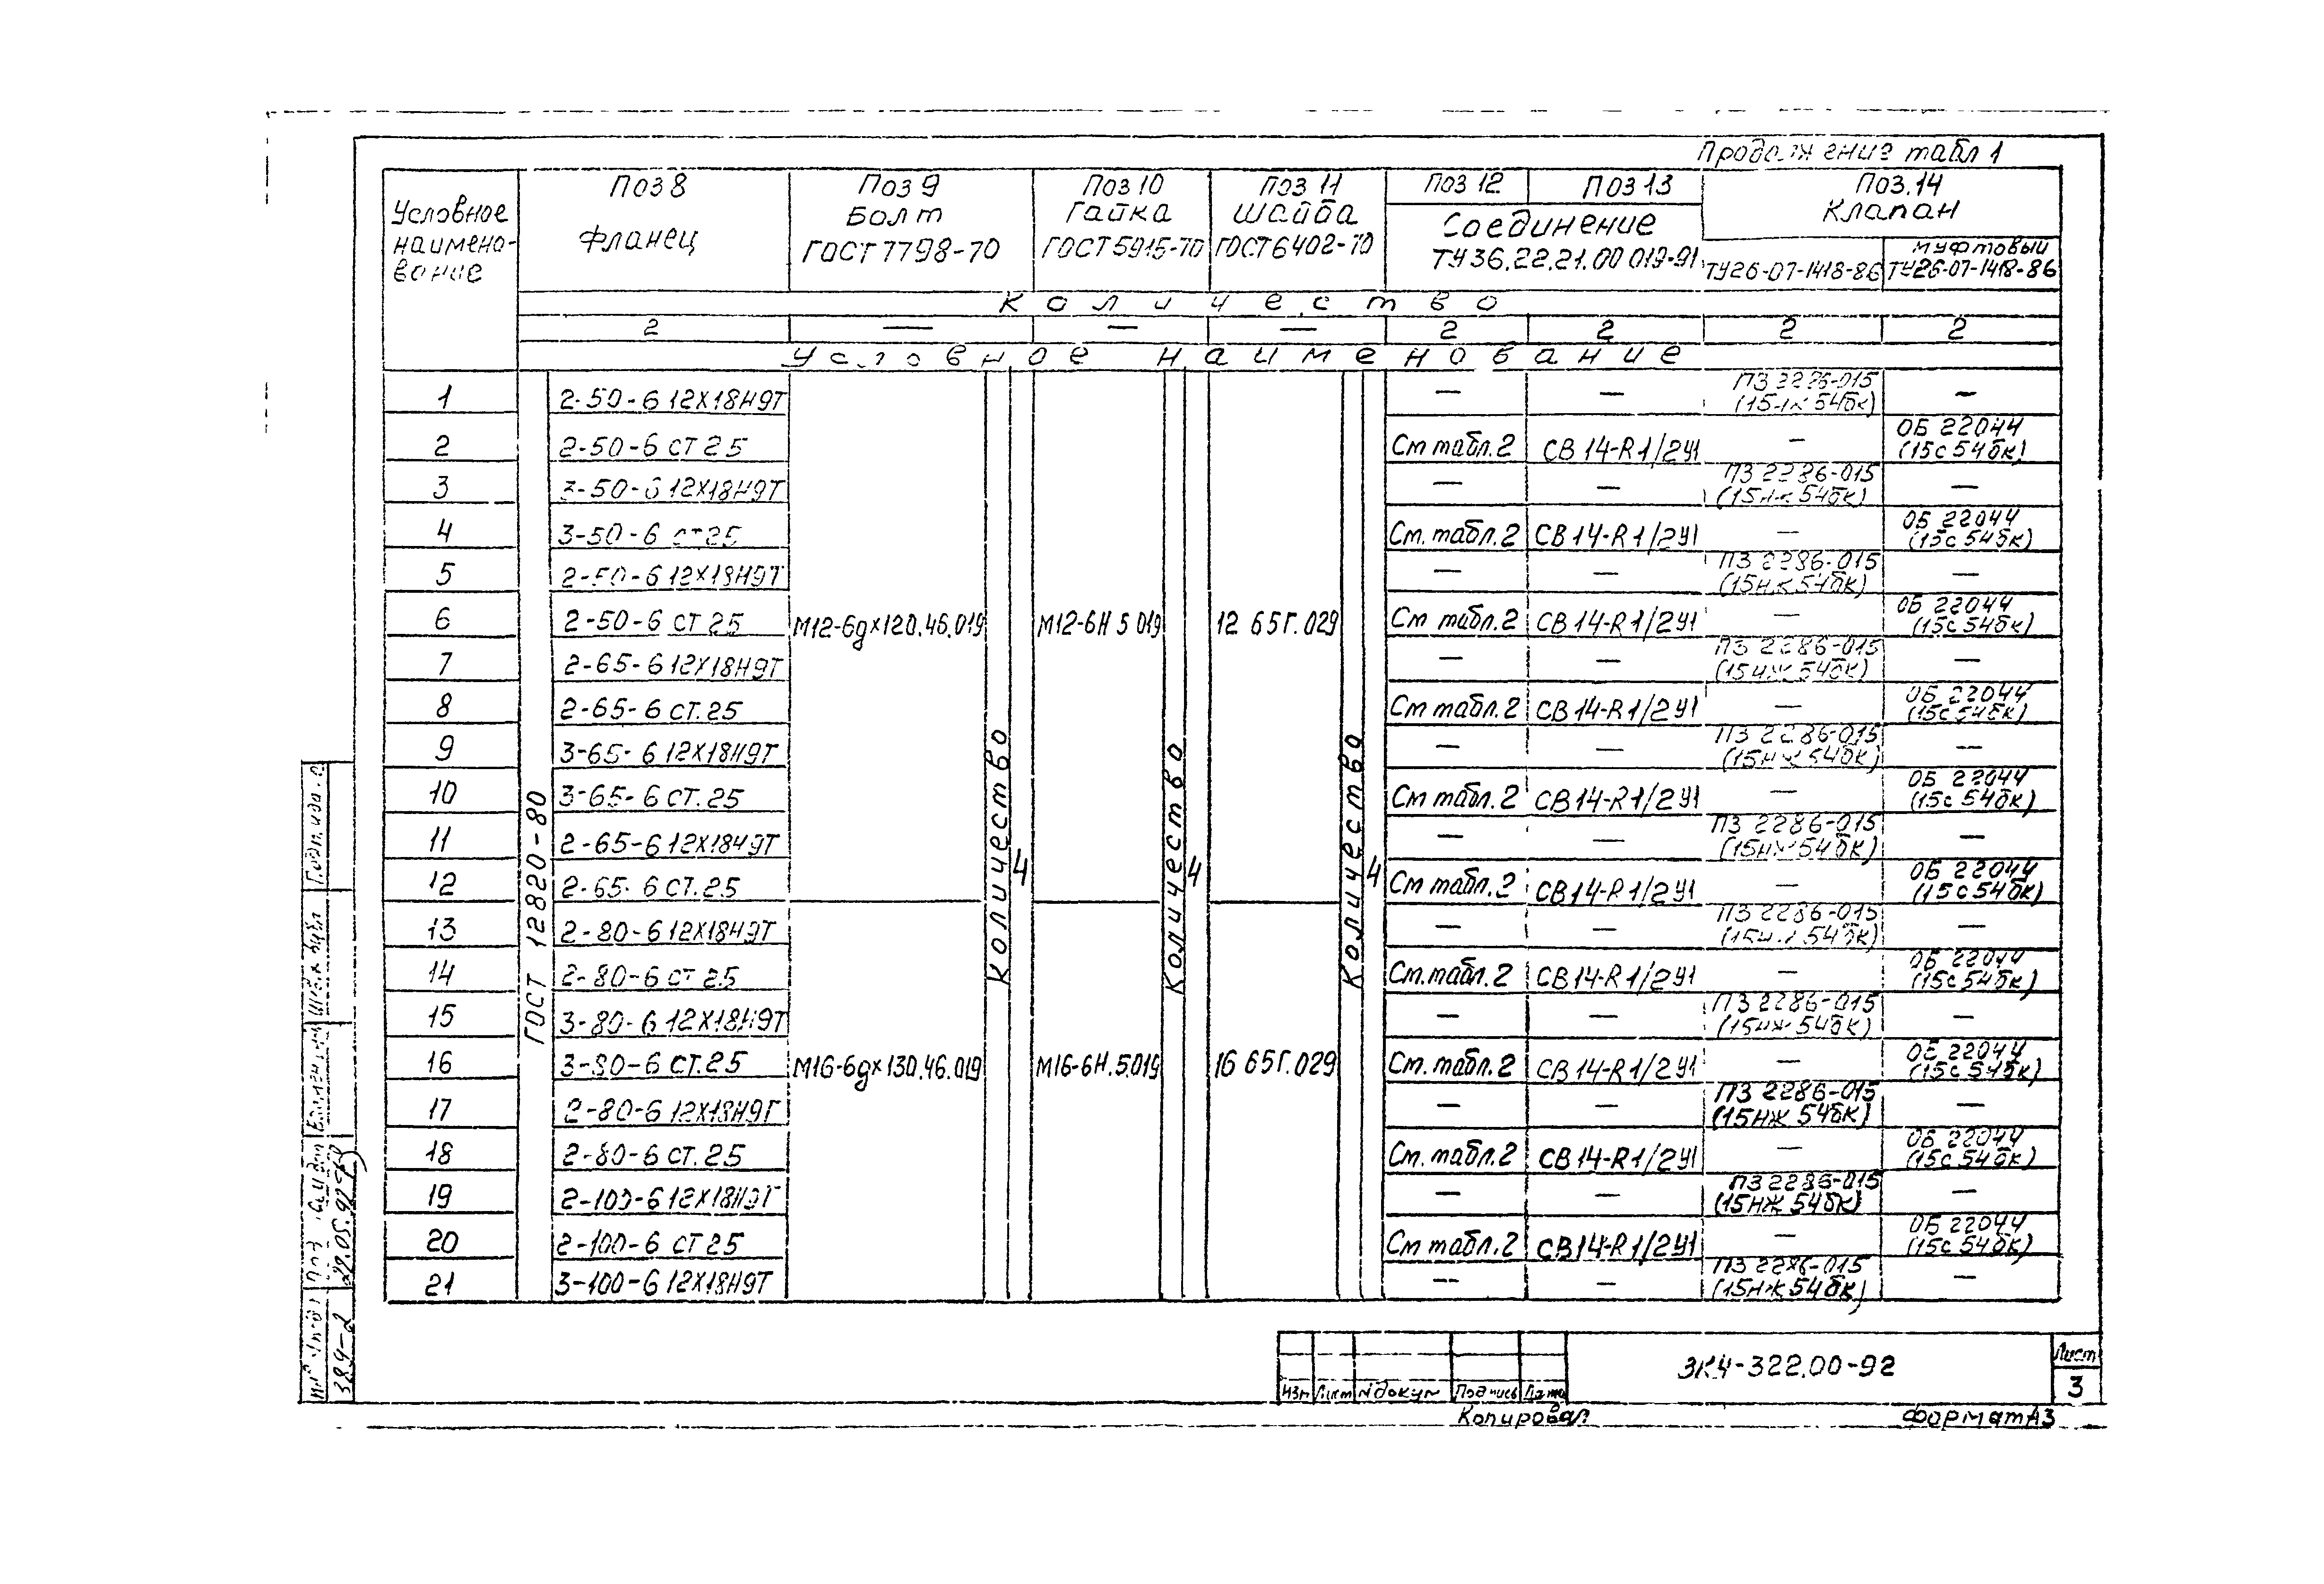 Продолжение табл 1
Условное наимено-вание
Поз 8
Фланец
Поз 9
Болт
ГОСТ 7798-70
Поз 10
Гайка
ГОСТ 5915-70
Поз 11
Шайба
ГОСТ 6402-70
Поз 12
Поз 13
Соединение
ТУ36.22.21.00 019-91
Поз.14
Клапан
ТУ26-07-1418-86
муфтовый
ТУ26-07-1418-86
Количество
2 — — — 2 2 2 2
Условное наименование
ГОСТ 12820-80
Количество 4
Количество 4
Количество 4
М12-6gх120.46.019 М12-6Н 5 019 12 65Г.029
М16-6gх130.46.019 М16-6Н.5.019 16 65Г.029
1 2-50-6 12Х18Н9Т — — ПЗ 2286-015 (15нж 54бк) —
2 2-50-6 СТ 25 См табл.2 СВ 14-R1/2У1 — ОБ 22044 (15с54бк)
3 3-50-6 12Х18Н9Т — — ПЗ 2286-015 (15нж 54бк) —
4 3-50-6 ст25 См. табл.2 СВ 14-R1/2У1 — ОБ 22044 (15с54бк)
5 2-50-6 12Х18Н9Т — — ПЗ 2286-015 (15нж 54бк) —
6 2-50-6 СТ 25 См табл.2 СВ 14-R1/2У1 — ОБ 22044 (15с54бк)
7 2-65-6 12Х18Н9Т — — ПЗ 2286-015 (15нж 54бк) —
8 2-65-6 СТ.25 См табл.2 СВ 14-R1/2У1 — ОБ 22044 (15с54бк)
9 3-65-6 12Х18Н9Т — — ПЗ 2286-015 (15нж 54бк) —
10 3-65-6 СТ.25 См табл.2 СВ 14-R1/2У1 — ОБ 22044 (15с54бк)
11 2-65-6 12Х18Н9Т — — ПЗ 2286-015 (15нж 54бк) —
12 2-65-6 СТ.25 См табл.2 СВ 14-R1/2У1 — ОБ 22044 (15с54бк)
13 2-80-6 12Х18Н9Т — — ПЗ 2286-015 (15нж 54бк) —
14 2-80-6 СТ 25 См.табл.2 СВ 14-R1/2У1 — ОБ 22044 (15с54бк)
15 3-80-6 12Х18Н9Т — — ПЗ 2286-015 (15нж 54бк) —
16 3-80-6 СТ.25 См.табл.2 СВ 14-R1/2У1 — ОБ 22044 (15с54бк)
17 2-80-6 12Х18Н9Т — — ПЗ 2286-015 (15нж 54бк) —
18 2-80-6 СТ.25 См.табл.2 СВ 14-R1/2У1 — ОБ 22044 (15с54бк)
19 2-100-6 12Х18Н9Т — — ПЗ 2286-015 (15нж 54бк) —
20 2-100-6 СТ25 См табл.2 СВ14-R1/2У1 — ОБ 22044 (15с54бк)
21 3-100-6 12Х18Н9Т — — ПЗ 2286-015 (15нж54бк) —
389-2
Изм Лист № докум Подпись Дата
ЗК4-322.00-92
Лист
3
Копировал
Формат А3